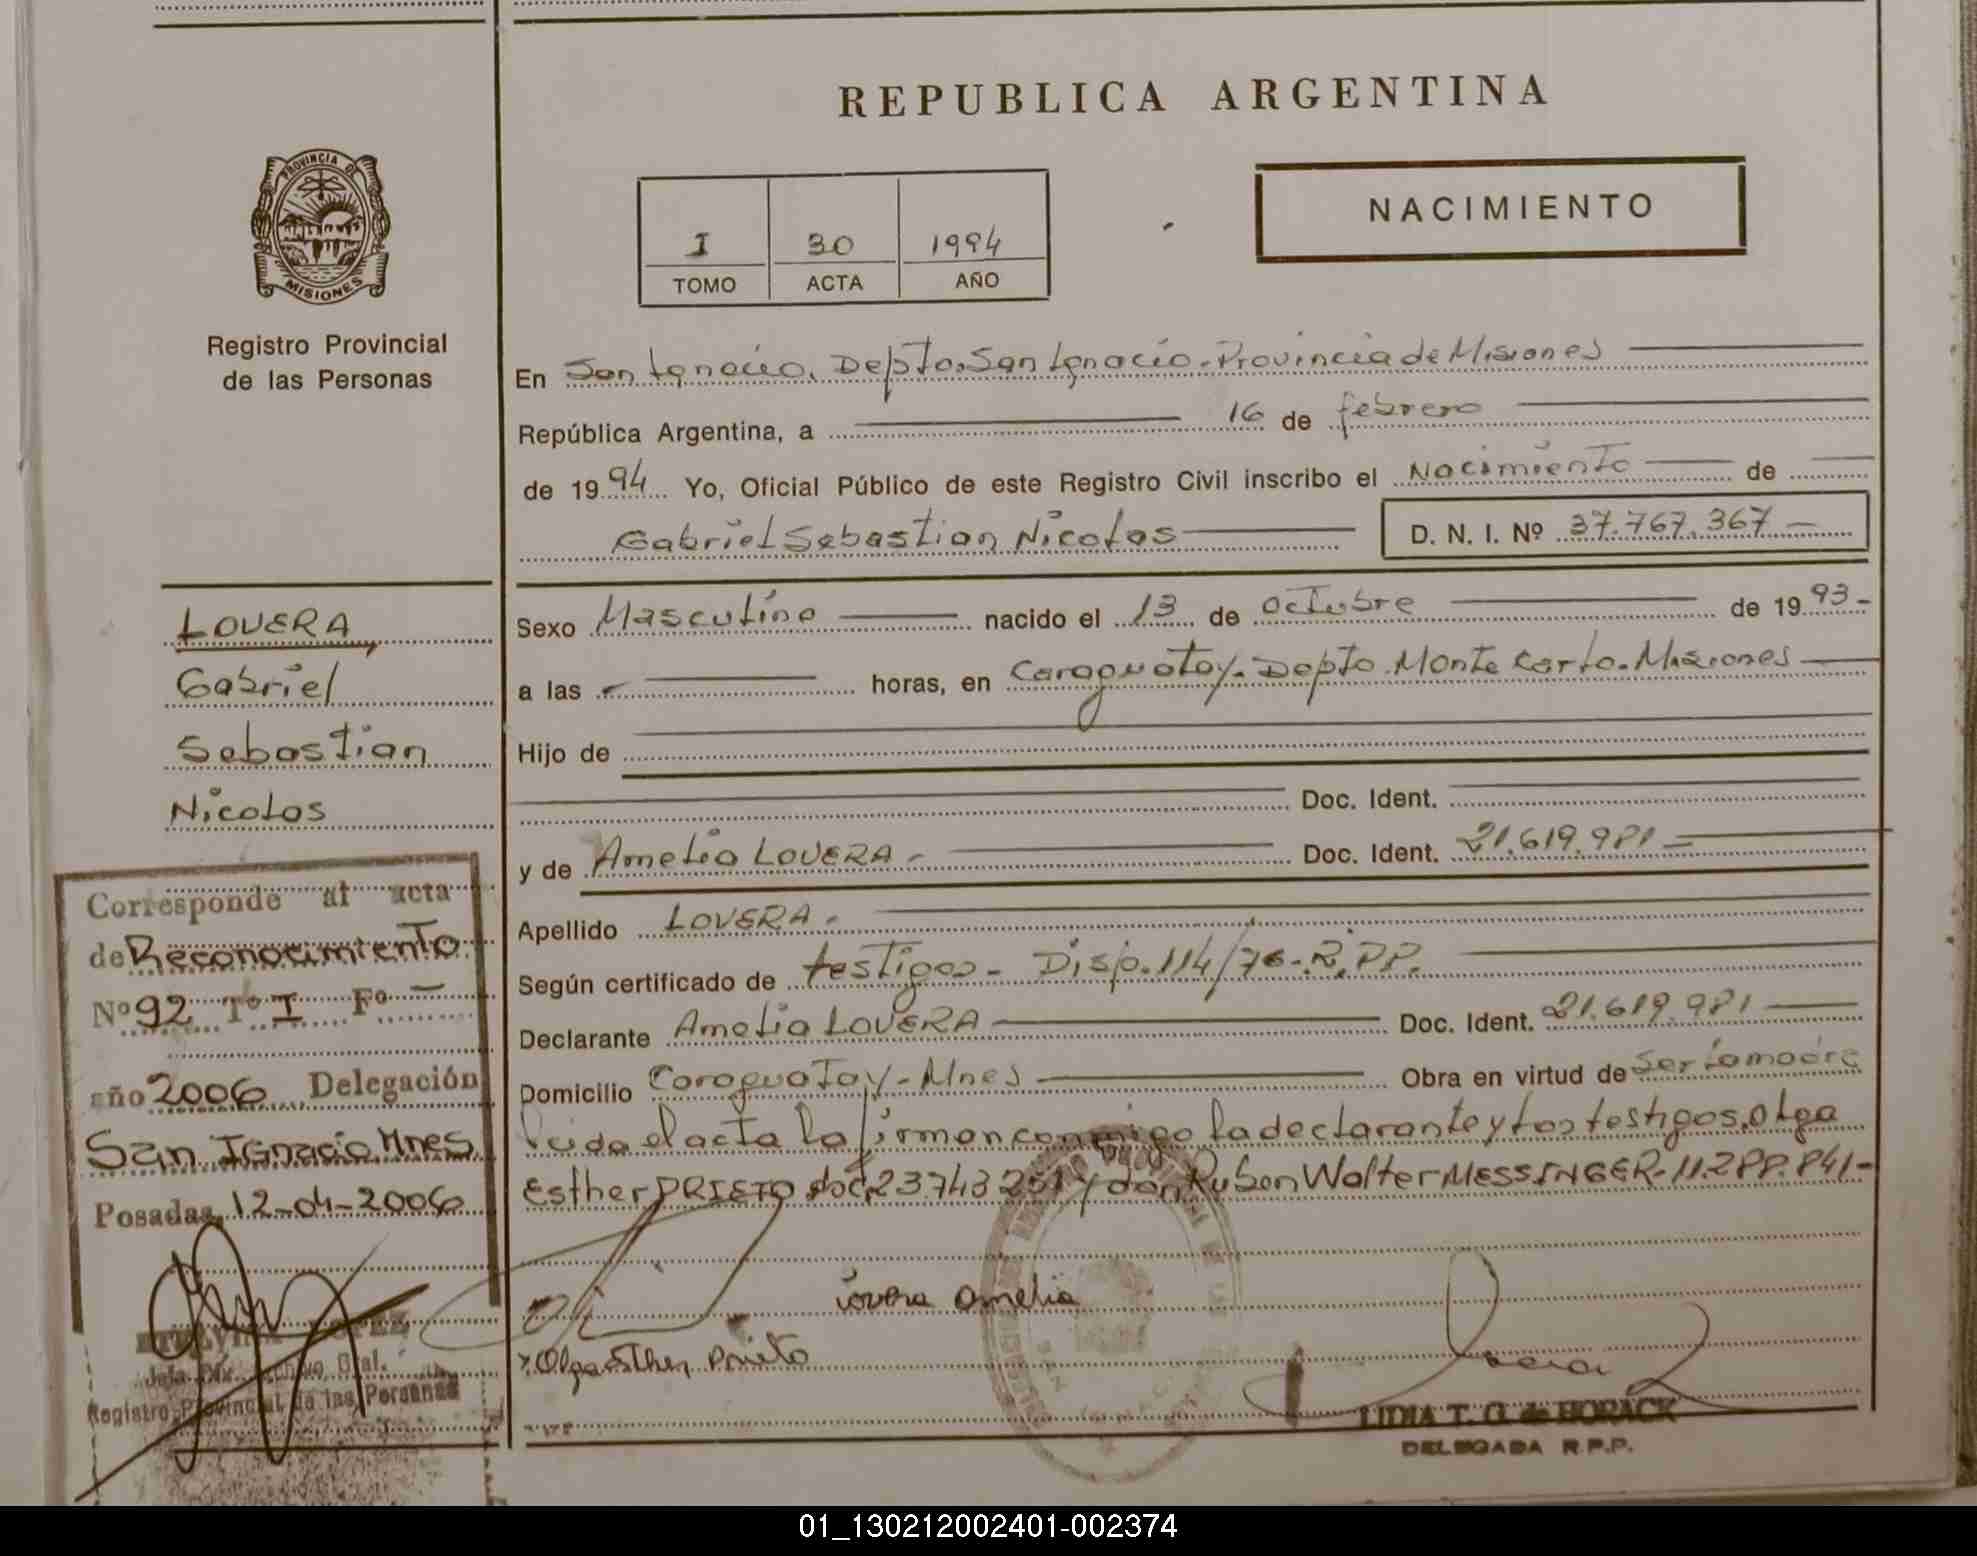 REPUBLICA ARGENTINA
PROVINCIA DE
MISIONES
Registro Provincial
de las Personas
NACIMIENTO
I 30 1994
TOMO ACTA AÑO
En San Ignacio. Depto. San Ignacio. Provincia de Misiones
República Argentina, a 16 de febrero
de 1994 Yo, Oficial Público de este Registro Civil inscribo el Nacimiento de
Gabriel Sebastian Nicolas D. N. I. Nº 37.767.367
LOVERA,
Gabriel
Sebastian
Nicolas
Sexo Masculino nacido el 13 de octubre de 1993-
a las horas, en Caraguatay. Depto. Monte Carlo. Misiones
Hijo de
Doc. Ident.
y de Amelia LOVERA - Doc. Ident. 21.619.981
Apellido LOVERA.
Según certificado de testigos - Disp. 114/76 - R.PP.
Declarante Amelia LOVERA Doc. Ident. 21.619.981
Domicilio Caraguatay - Mnes Obra en virtud de ser la madre
leida el acta la firman conmigo la declarante y los testigos. Olga
Esther PRIETO doc. 23.743.251 y don Ruben Walter MESSINGER - 11.288.841-
Lovera Amelia
Olga Esther Prieto
LIDIA T. G. de HORACK
DELEGADA R.P.P.
Corresponde al acta
de Reconocimiento
Nº 92 Tº I Fº -
año 2006 Delegación
San Ignacio Mnes
Posadas, 12-04-2006
Registro Provincial de las Personas
01_130212002401-002374